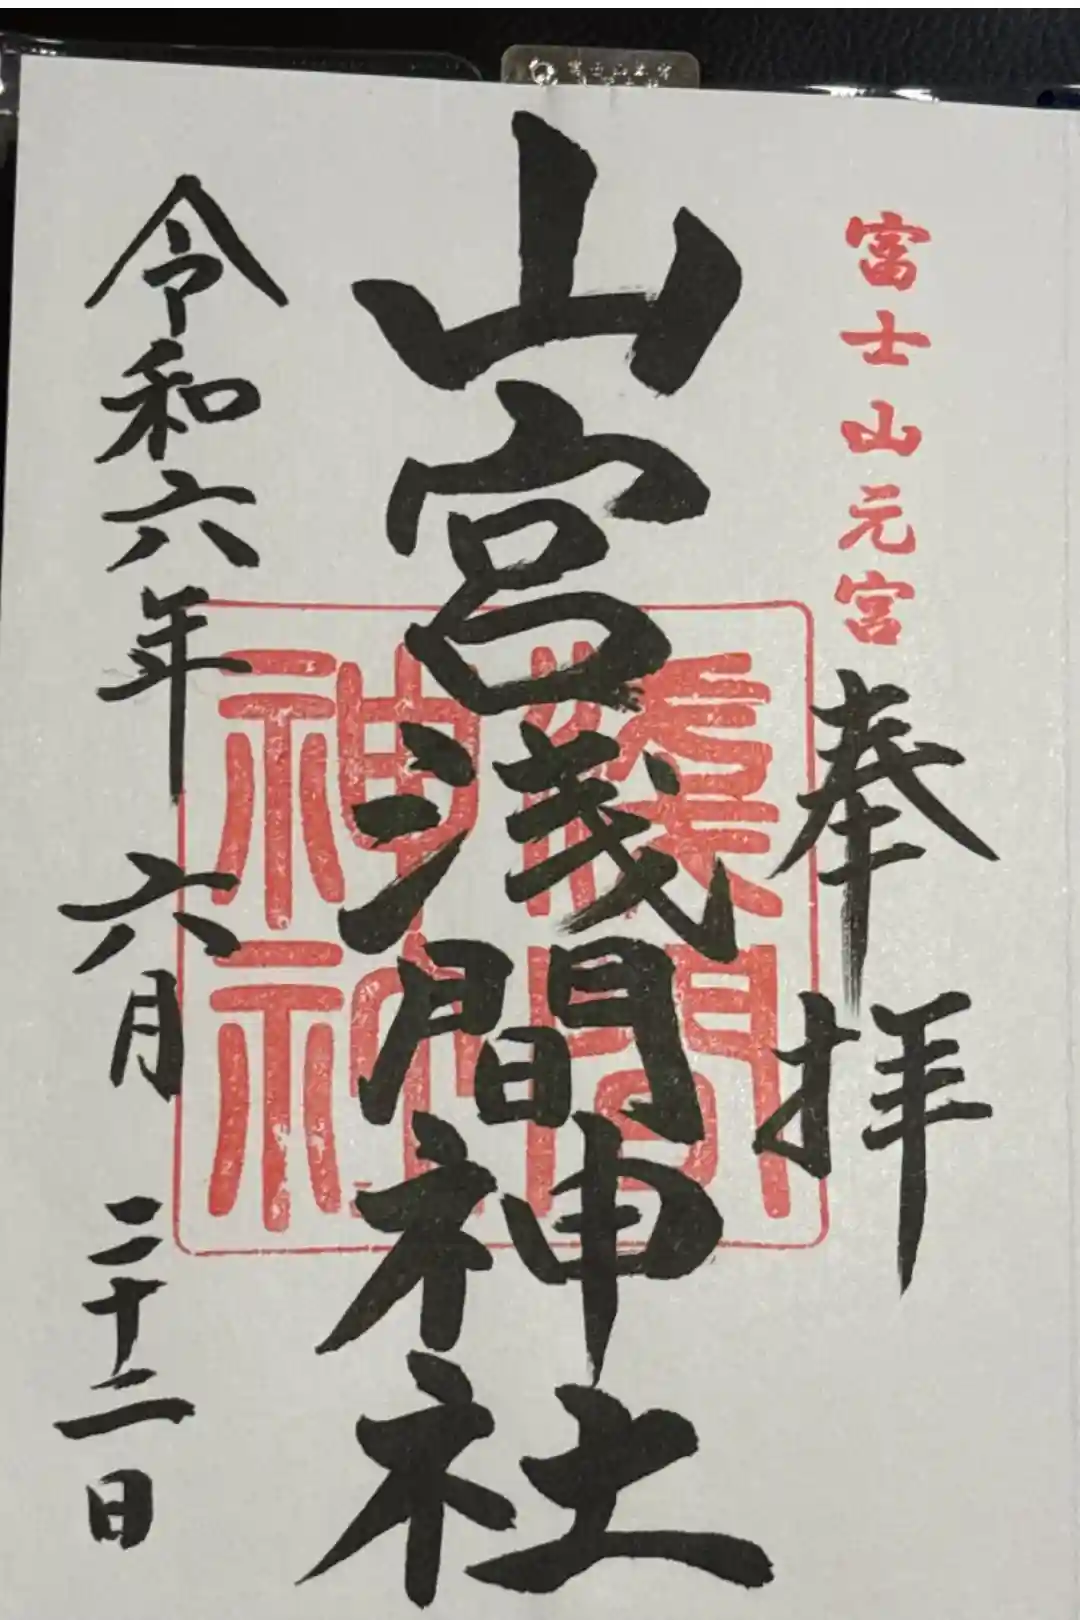 富士山元宮
奉拝
山宮浅間神社
令和六年六月二十二日
浅間
神社